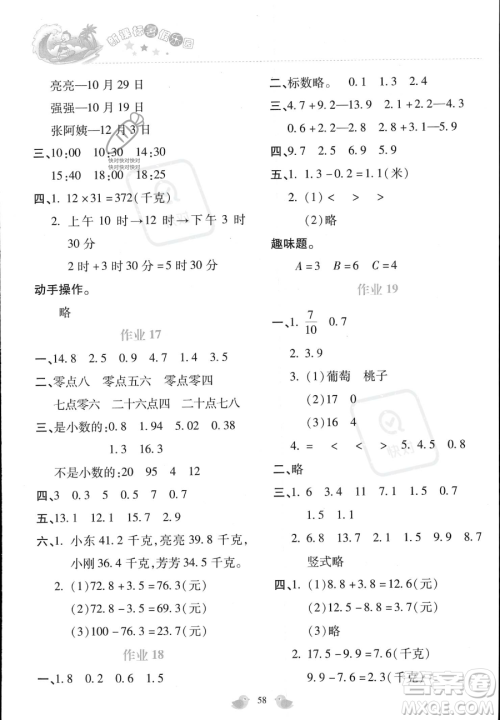 亮亮—10 月 29 日
强强—10 月 18 日
张阿姨—12 月 3 日
三、10:00 10:30 14:30
15:40 18:20 18:25
四、1. 12×31=372(千克)
2. 上午 10 时→12 时→下午 3 时
30 分
2 时+3 时 30 分=5 时 30 分
动手操作。
略
作业 17
一、14.8 2.5 0.9 4.7 1.5
二、零点八 零点五六 零点零四
七点零六 二十六点四 一点五
三、是小数的:0.7 9.8 5.02
1.3 16.3
不是小数的:20 95 4
四、3 2 5 4 1
五、13.1 2.9 7.5 8.1
六、1. 小东 41.2 千克,亮亮 39.8 千克,
小刚 36.5 千克,芳芳 34.9 千克。
2. (1)72.8+3.5=76.3(元)
(2)72.8-3.5=69.3(元)
(3)100-76.3=23.7(元)
作业 18
一、1.8 0.5 0.6 0.8
二、标数略。 0.1 1.3 2.4
三、4.7+9.2=13.9 1.9-1.5=0.4
0.6+2.2=2.8 8.9-0.8=8.1
四、9.7 2.8 5.9 1.5
五、1. 1.3-0.2=1.1(米)
2. (1)< < >
(2)略
趣味题。
A=3 B=6 C=4
作业 19
一、1. 7/10 0.7
2. 3.9
3. (1)葡萄 桃子
(2)17 0
(3)16 4
4. = < > < 5. 4.5 0.8
二、略
三、1. 6 4.7 1.1 3.9
2. 6.8 2.9 7.9 8.9
竖式略
四、1. (1)8.8+3.8=12.6(元)
(2)9.9-2.9=7(元)
(3)略
2. 17.5-9.9=7.6(千克)
58